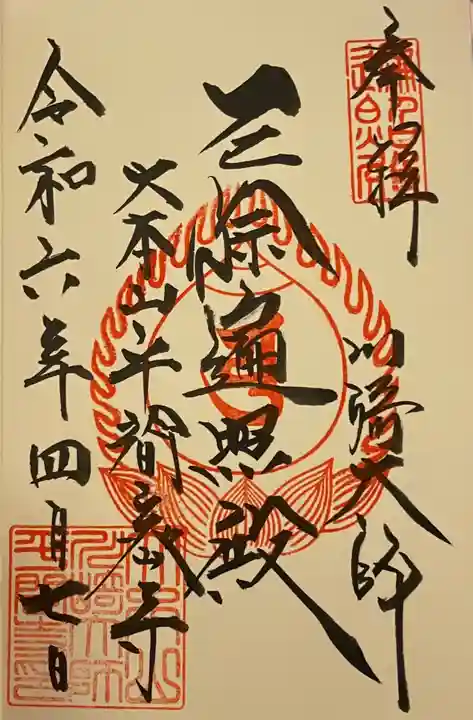 奉拝
川崎大師
厄除遍照殿
大本山平間寺
令和六年四月七日